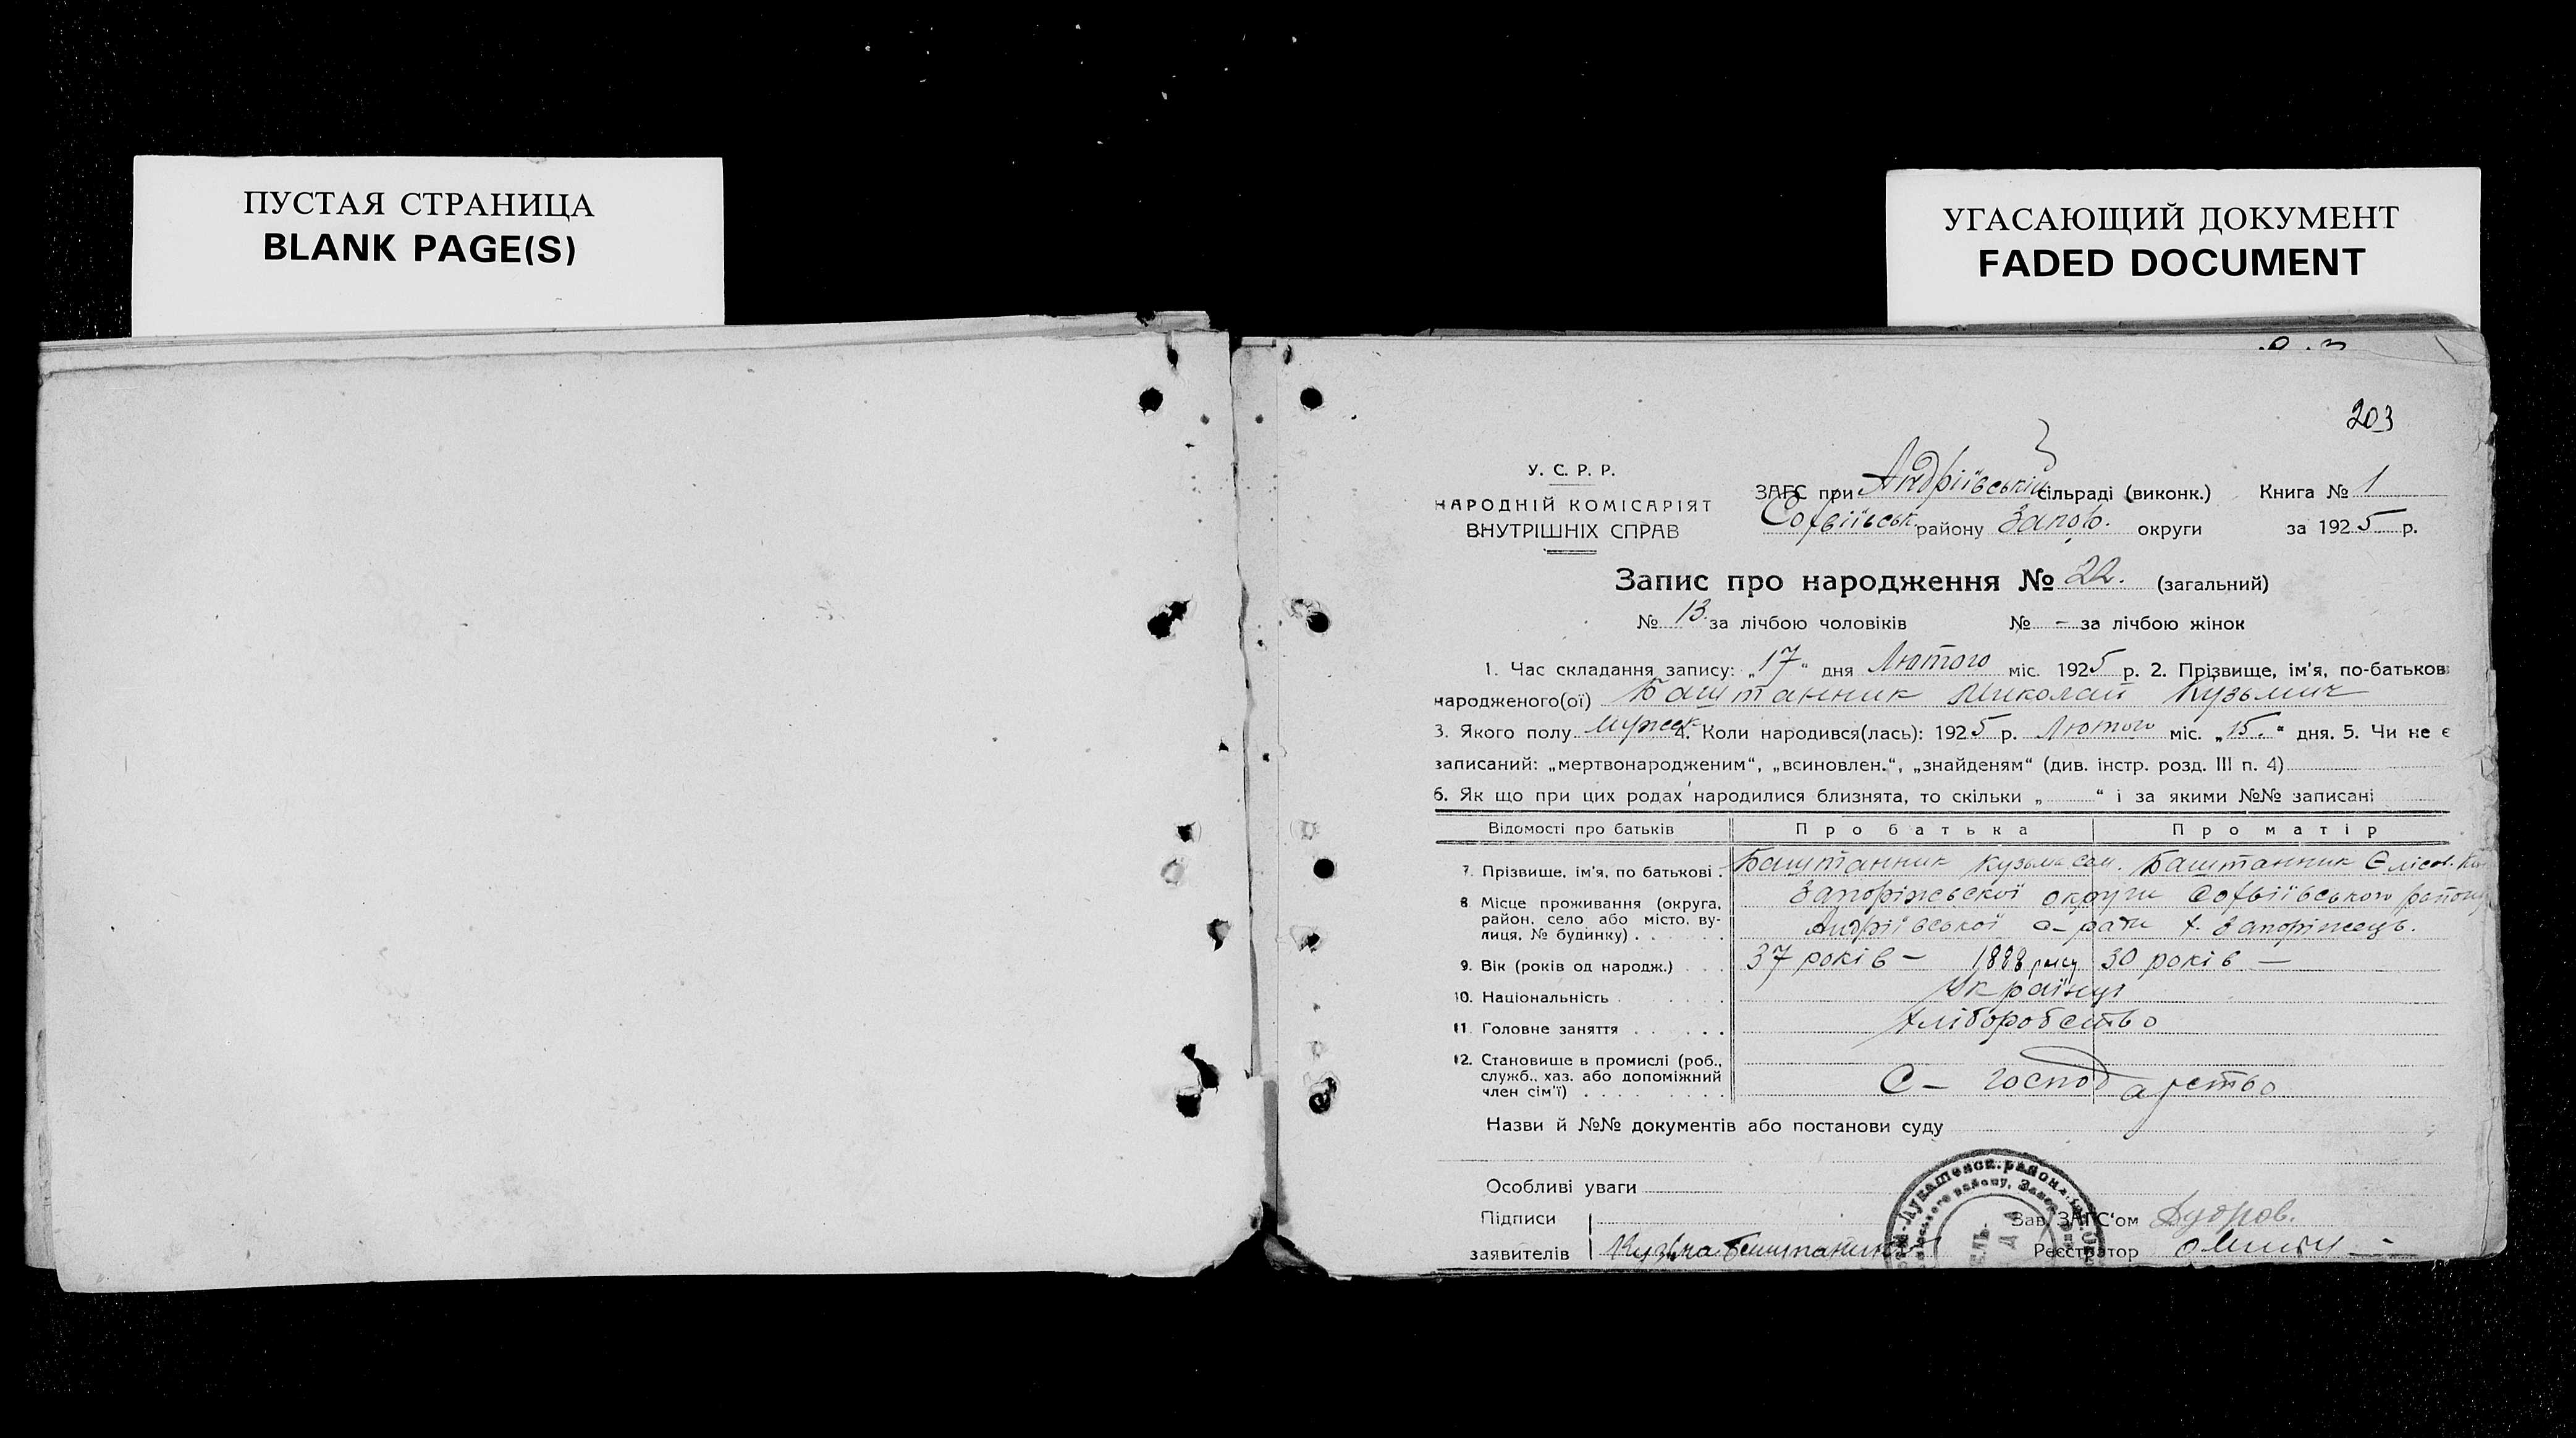 ПУСТАЯ СТРАНИЦА
BLANK PAGE(S)
УГАСАЮЩИЙ ДОКУМЕНТ
FADED DOCUMENT
203
У. С. Р. Р.
НАРОДНІЙ КОМІСАРІЯТ
ВНУТРІШНІХ СПРАВ
ЗАГС при Андріївській сільраді (виконк.) Книга № 1
Софіївськ. району Запор. округи за 1925 р.
Запис про народження № 22. (загальний)
№ 13. за лічбою чоловіків № – за лічбою жінок
1. Час складання запису: „17" дня Лютого міс. 1925 р. 2. Прізвище, ім'я, по-батькові
народженого(ої) Баштанник Николай Кузьмич
3. Якого полу мужск. 4. Коли народився(лась): 1925 р. Лютого міс. „15." дня. 5. Чи не є
записаний: „мертвонародженим", „всиновлен.", „знайденям" (див. інстр. розд. III п. 4)
6. Як що при цих родах народилися близнята, то скільки „ " і за якими №№ записані
Відомості про батьків Про батька Про матір
7. Прізвище, ім'я, по батькові . Баштанник Кузьма Сам. Баштанник Єлисов.
8. Місце проживання (округа, район, село або місто, вулиця, № будинку) . Запоріжської округи Софвіївського району
Андріївської с–ради х. Запоріжець.
9. Вік (років од народж.) 37 років – 1888 року 30 років —
10. Національність Українці
11. Головне заняття хліборобство
12. Становище в промислі (роб.,
служб., хаз. або допоміжний
член сім'ї) С – господарство
Назви й №№ документів або постанови суду
Особливі уваги
Підписи Зав. ЗАГС'ом
заявителів Кузьма Баштанник Реєстратор